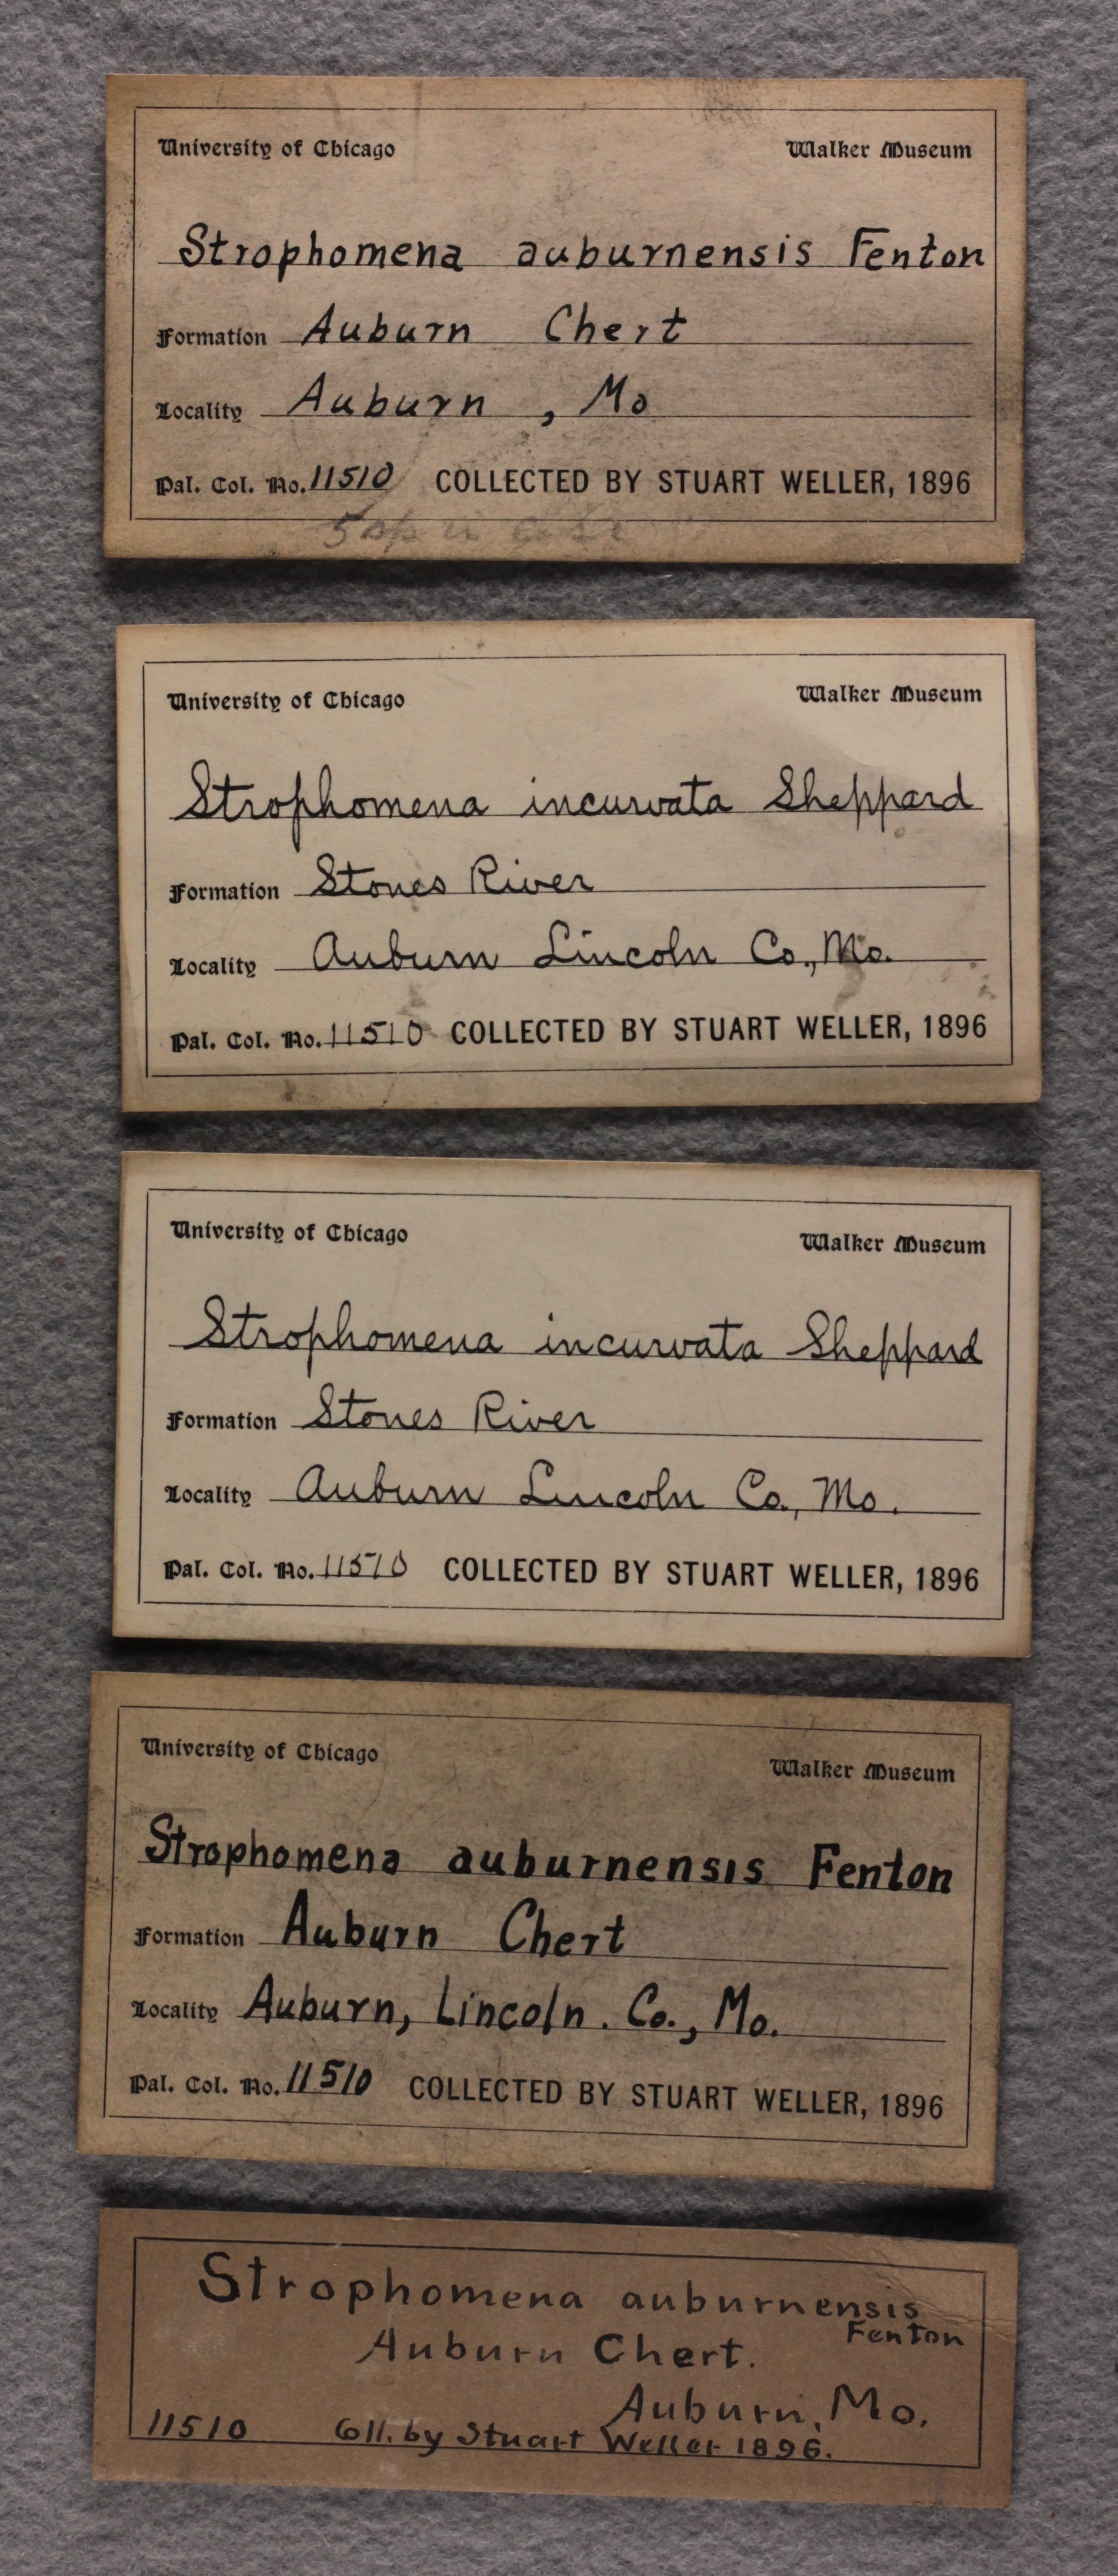 University of Chicago Walker Museum
Strophomena auburnensis Fenton
Formation Auburn Chert
Locality Auburn, Mo
Pal. Col. No. 11510 COLLECTED BY STUART WELLER, 1896
University of Chicago Walker Museum
Strophomena incurvata Sheppard
Formation Stones River
Locality Auburn Lincoln Co., Mo.
Pal. Col. No. 11510 COLLECTED BY STUART WELLER, 1896
University of Chicago Walker Museum
Strophomena incurvata Sheppard
Formation Stones River
Locality Auburn Lincoln Co., Mo.
Pal. Col. No. 11510 COLLECTED BY STUART WELLER, 1896
University of Chicago Walker Museum
Strophomena auburnensis Fenton
Formation Auburn Chert
Locality Auburn, Lincoln. Co., Mo.
Pal. Col. No. 11510 COLLECTED BY STUART WELLER, 1896
Strophomena auburnensis
Fenton
Auburn Chert.
Auburn, Mo.
11510 Coll. by Stuart Weller 1896.